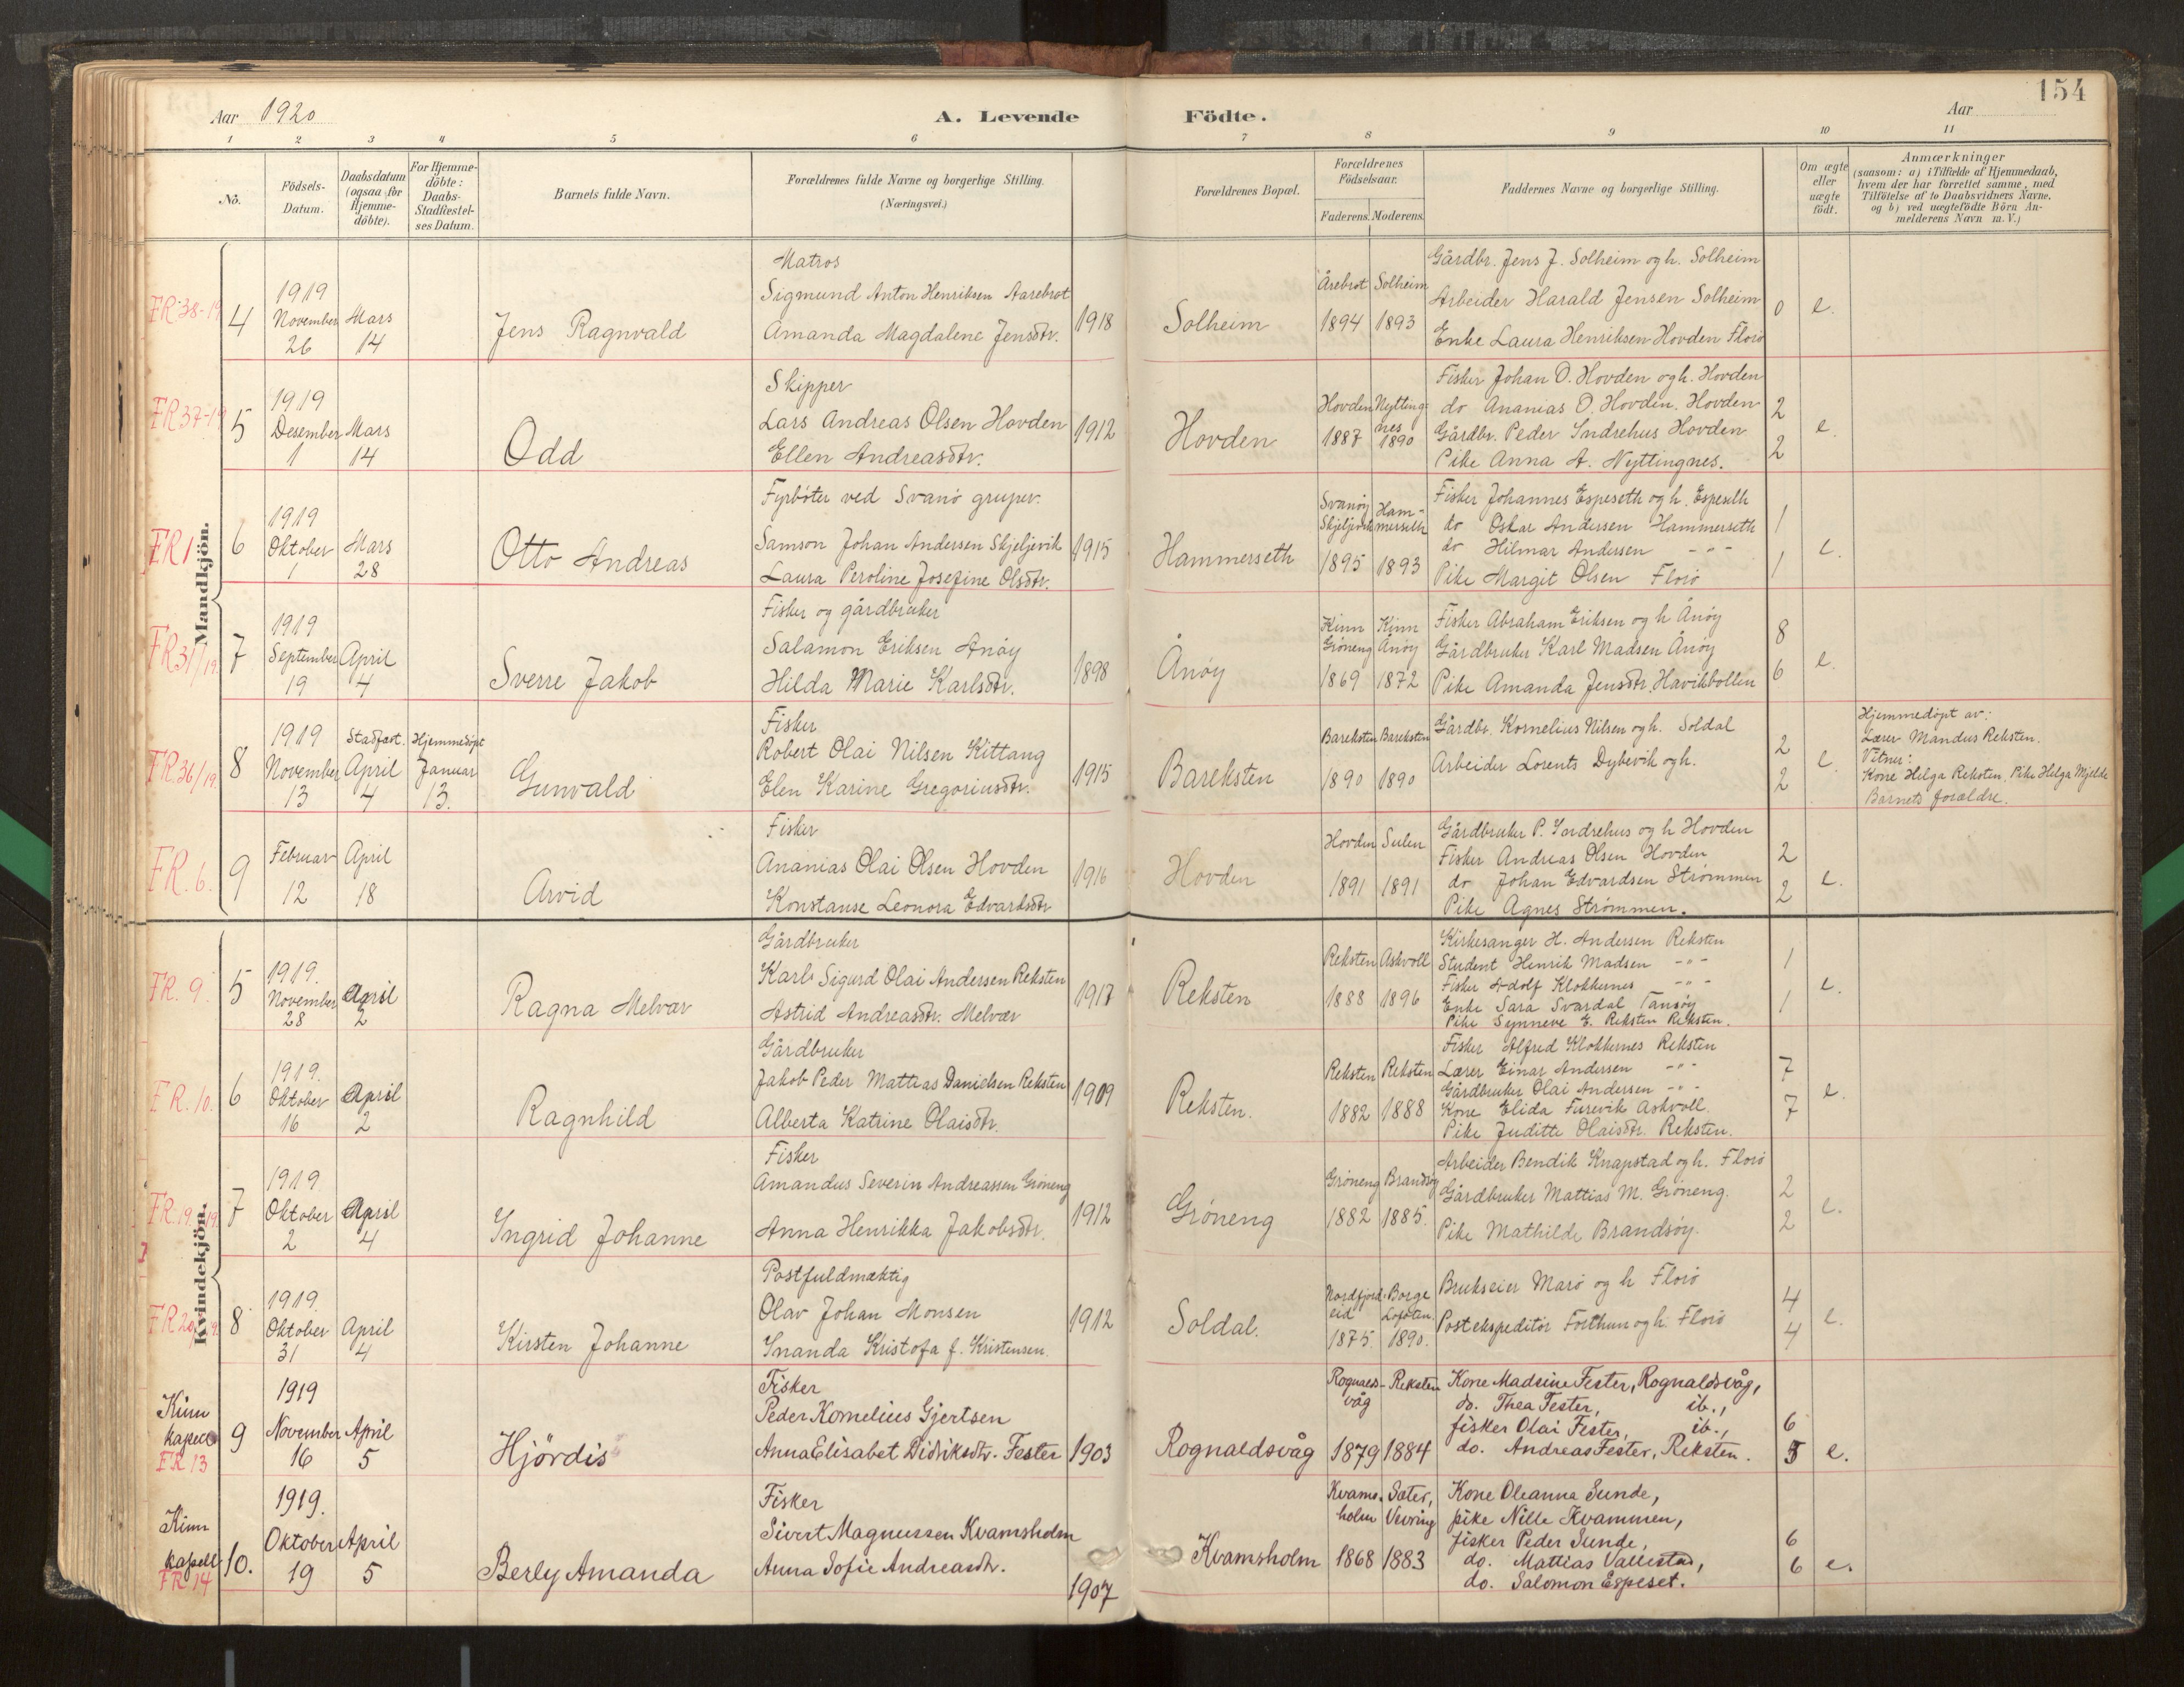 154
Aar 1920
A. Levende
Födte.
Aar
1 2 3 4 5 6 7 8 9 10 11
No.
Födsels-Datum.
Daabsdatum (ogsaa for Hjemme-döbte).
For Hjemme-döbte: Daabs-Stadfæstel-ses Datum.
Barnets fulde Navn.
Forældrenes fulde Navne og borgerlige Stilling.
(Næringsvei.)
Forældrenes Bopæl.
Forældrenes Födselsaar.
Faderens. Moderens.
Faddernes Navne og borgerlige Stilling.
Om ægte eller uægte födt.
Anmærkninger
(saasom: a) i Tilfælde af Hjemmedaab,
hvem der har forrettet samme, med
Tilföielse af to Daabsvidners Navne,
og b) ved uægtefödte Börn An-
melderens Navn m. V.)
Mandkjön.
FR 38-19
4
1919 November 26
Mars 14
Jens Ragnvald
Matros
Sigmund Anton Henriksen Aarebrot
Amanda Magdalene Jensdtr.
1918
Solheim
Årebrot 1894
Solheim 1893
Gårdbr. Jens J. Solheim og h. Solheim
Arbeider Harald Jensen Solheim
Enke Laura Henriksen Hovden Florø
0
e.
FR 37-19
5
1919 Desember 1
Mars 14
Odd
Skipper
Lars Andreas Olsen Hovden
Ellen Andreasdtr.
1912
Hovden
Hovden 1887
Nyttingnes 1890
Fisker Johan O. Hovden og h. Hovden
do Ananias O. Hovden. Hovden
Gårdbr. Peder Indrehus Hovden
Pike Anna A. Nyttingnes.
2
2
e.
FR 1
6
1919 Oktober 1
Mars 28
Otto Andreas
Fyrbøter ved Svanø gruver.
Samson Johan Andersen Skjeljevik
Laura Peroline Josefine Olsdtr.
1915
Hammerseth
Svanøy Skjeljevik 1895
Ham-merseth 1893
Fisker Johannes Espeseth og h. Espeseth
do Oskar Andersen Hammerseth
do Hilmar Andersen -"-
Pike Margit Olsen Florø
1
1
e.
FR 31/19.
7
1919 September 19
April 4
Sverre Jakob
Fisker og gårdbruker
Salamon Eriksen Anøy
Hilda Marie Karlsdtr.
1898
Ånøy
Kinn Grøneng 1869
Kinn Anøy 1872
Fisker Abraham Eriksen og h Ånøy
Gårdbruker Karl Madsen Ånøy
Pike Amanda Jensdtr. Havikbotten
8
6
e.
FR 36/19.
8
1919 November 13
Stadfæst. April 4
Hjemmedøpt Januar 13.
Gunvald
Fisker
Robert Olai Nilsen Kittang
Elen Karine Gregoriusdtr.
1915
Bareksten
Bareksten 1890
Bareksten 1890
Gårdbr. Kornelius Nilsen og h. Soldal
Arbeider Lorents Dybevik og h.
2
2
e.
Hjemmedøpt av:
Lærer Mandus Reksten.
Vitner:
Kone Helga Reksten, Pike Helga Mjelde
Barnets forældre.
FR. 6.
9
Februar 12
April 18
Arvid
Fisker
Ananias Olai Olsen Hovden
Konstanse Leonora Edvardsdtr
1916
Hovden
Hovden 1891
Sulen 1891
Gårdbruker P. Indrehus og h Hovden
Fisker Andreas Olsen Hovden
do Johan Edvardsen Strømmen
Pike Agnes Strømmen.
2
2
e.
Kvindekjön.
FR. 9.
5
1919. November 28
April 2
Ragna Melvær
Gårdbruker
Karl Sigurd Olai Andersen Reksten
Astrid Andreasdtr. Melvær
1917
Reksten
Reksten 1888
Askvoll 1896
Kirkesanger H. Andersen Reksten
Student Henrik Madsen -"-
Fisker Adolf Klokkernes -"-
Enke Sara Svardal Tansøy
Pike Synneve E. Reksten Reksten.
1
1
e.
FR. 10.
6
1919. Oktober 16
April 2
Ragnhild
Gårdbruker
Jakob Peder Mattias Danielsen Reksten
Alberta Katrine Olaisdtr.
1909
Reksten.
Reksten 1882
Reksten 1888
Fisker Alfred Klokkernes Reksten
Lærer Einar Andersen -"-
Gårdbruker Olai Andersen -"-
Kone Elida Furevik Askvoll.
Pike Juditte Olaisdtr. Reksten.
7
7
e.
FR. 19. 19.
7
1919 Oktober 2
April 4
Ingrid Johanne
Fisker
Amandus Severin Andreassen Grøneng
Anna Henrikka Jakobsdtr.
1912
Grøneng
Grøneng 1882
Brandsøy 1885.
Arbeider Bendik Knapstad og h. Florø
Gårdbruker Mattias M. Grøneng.
Pike Mathilde Brandsøy.
2
2
e.
FR 20
8
1919. Oktober 31
April 4
Kirsten Johanne
Postfuldmæktig
Olav Johan Monsen
Inanda Kristofa f. Kristensen.
1912
Soldal.
Nordfjord-eid 1875.
Borge Lofoten. 1890.
Brukseier Marø og h Florø
Postekspeditør Forthun og h. Florø
4
4
e.
Kinn kapell FR 13
9
1919 November 16
April 5
Hjördis
Fisker
Peder Kornelius Gjertsen
Anna Elisabet Didriksdtr. Fester
1903
Rognaldsvåg
Rognalds-våg 1879
Reksten 1884
Kone Madsine Fester, Rognaldsvåg,
do. Thea Fester, ib.,
fisker Olai Fester, ib.,
do. Andreas Fester, Reksten.
6
5
e.
Kinn kapell FR 14
10.
1919. Oktober 19
April 5
Berly Amanda
Fisker
Sivert Magnussen Kvamsholm
Anna Sofie Andreasdtr.
1907
Kvamsholm
Kvams-holm 1868
Sæter, Vevring 1883
Kone Oleanna Sunde,
pike Nille Kvammen,
fisker Peder Sunde,
do. Mattias Vallestad,
do. Salomon Espeset.
6
6
e.